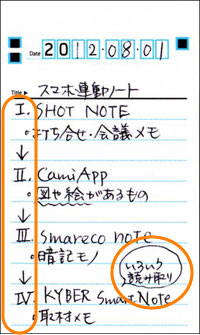 Date 2012.08.01
Title▶ スマホ連動ノート
I. SHOT NOTE
・打ち合せ・会議メモ
↓
II. CamiApp
・図や絵があるもの
↓
III. smareco note
・暗記モノ
いろいろ
読み取り
↓
IV. KYBER SmartNote
・取材メモ